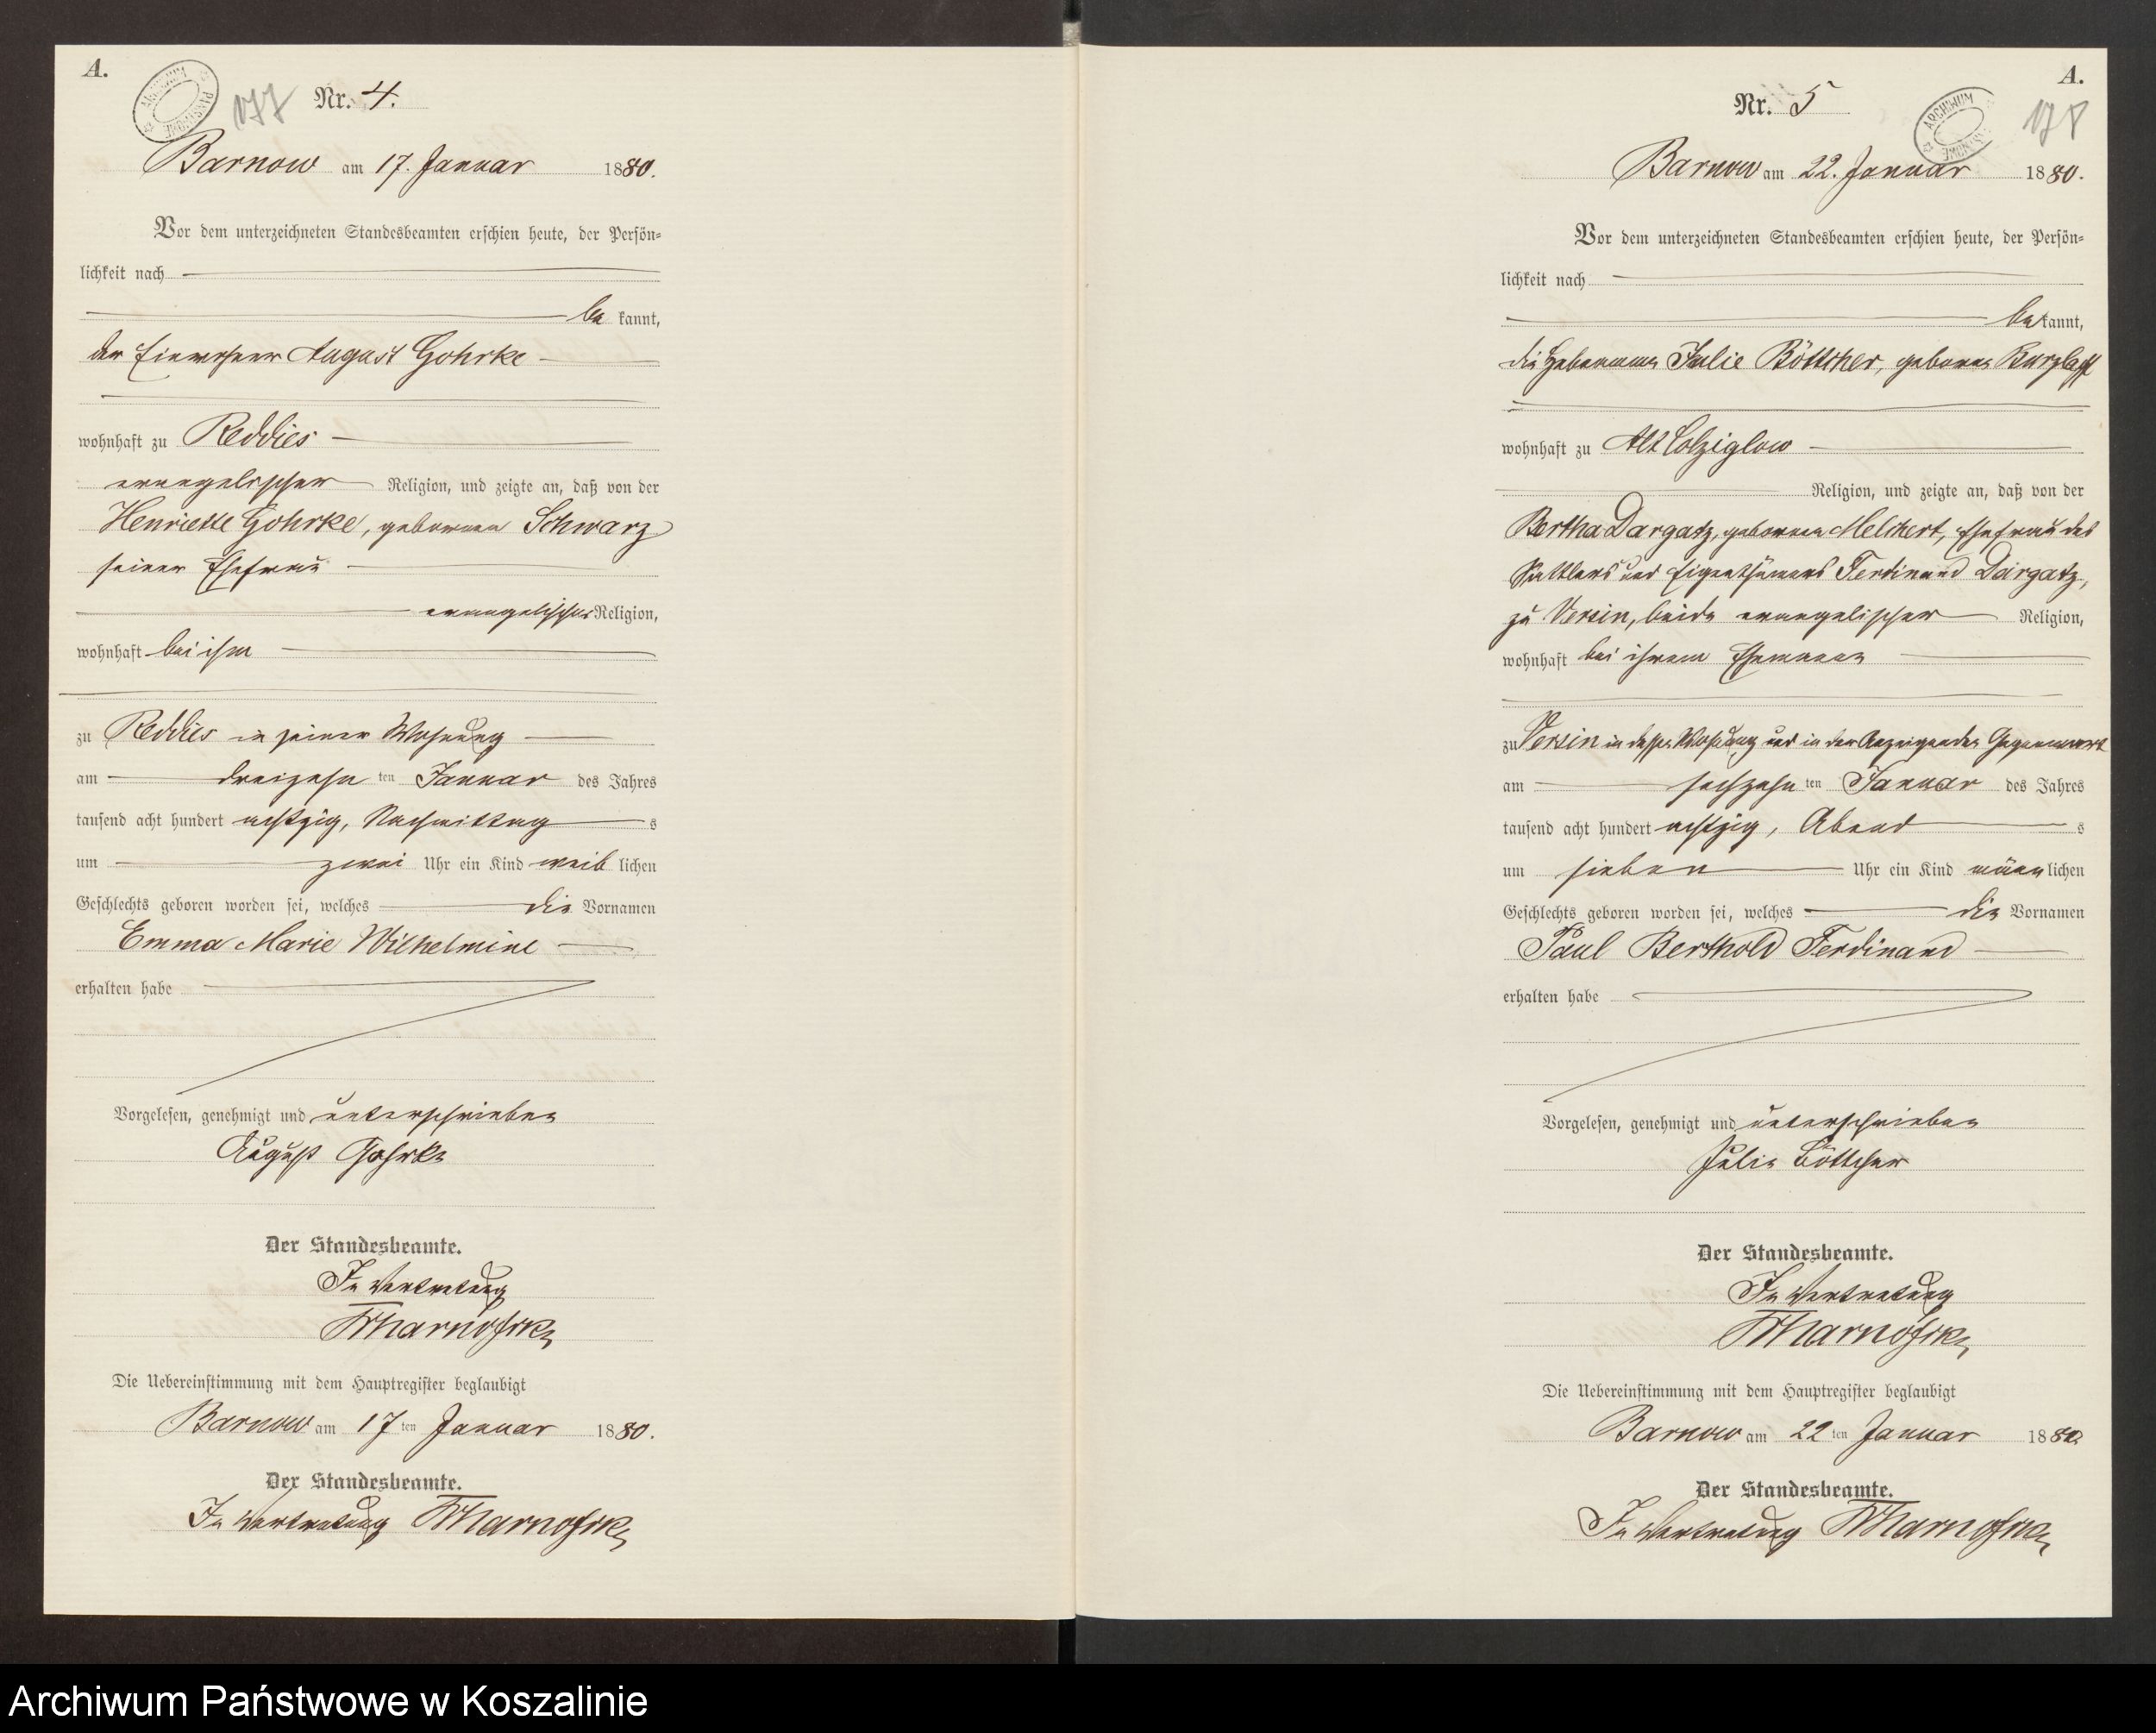 A.
177 Nr. 4.
Barnow am 17. Januar 1880.
Vor dem unterzeichneten Standesbeamten erschien heute, der Persön=
lichkeit nach
be kannt,
der Einwohner August Gohrke
wohnhaft zu Reddies
evangelischer Religion, und zeigte an, daß von der
Henriette Gohrke, geborenen Schwarz
seiner Ehefrau
evangelischer Religion,
wohnhaft bei ihm
zu Reddies in seiner Wohnung
am dreizehn ten Januar des Jahres
tausend acht hundert achtzig, Nachmittag s
um zwei Uhr ein Kind weib lichen
Geschlechts geboren worden sei, welches die Vornamen
Emma Marie Wilhelmine
erhalten habe
Vorgelesen, genehmigt und unterschrieben
August Gohrke
Der Standesbeamte.
In Vertretung
Die Uebereinstimmung mit dem Hauptregister beglaubigt
Barnow am 17 ten Januar 1880.
Der Standesbeamte.
In Vertretung
A.
Nr. 5 ARCHIWUM 178
Barnow am 22. Januar 1880.
Vor dem unterzeichneten Standesbeamten erschien heute, der Persön=
lichkeit nach
be kannt,
die Hebamme Julie Böttcher, geborene Kurzlaff
wohnhaft zu Alt Colziglow
Religion, und zeigte an, daß von der
Bertha Dargatz, geborenen Melchert, Ehefrau des
Sattlers und Eigenthümers Ferdinand Dargatz,
zu Versin, beide evangelischer Religion,
wohnhaft bei ihrem Ehemann
zu Versin in dessen Wohnung und in der Anzeigenden Gegenwart
am sechzehn ten Januar des Jahres
tausend acht hundert achtzig, Abend s
um sieben Uhr ein Kind männ lichen
Geschlechts geboren worden sei, welches die Vornamen
Paul Berthold Ferdinand
erhalten habe
Vorgelesen, genehmigt und unterschrieben
Julie Böttcher
Der Standesbeamte.
In Vertretung
Die Uebereinstimmung mit dem Hauptregister beglaubigt
Barnow am 22 ten Januar 1880.
Der Standesbeamte.
In Vertretung
Archiwum Państwowe w Koszalinie